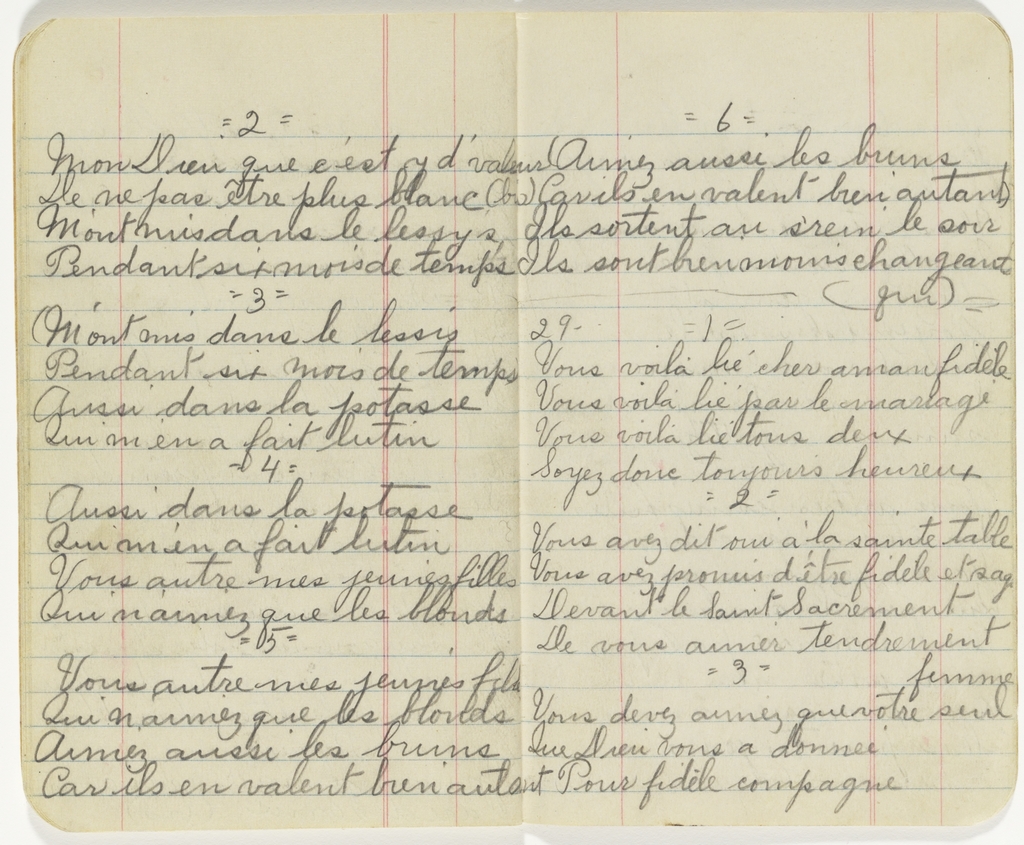 = 2 =
Mon Dieu que c'est y d'valeur
De ne pas être plus blanc (bis)
M'ont mis dans le lessys
Pendant six mois de temps
= 3 =
(M'ont mis dans le lessis
Pendant six mois de temps
Aussi dans la potasse
Qui m'en a fait lutin
= 4 =
Aussi dans la potasse
Qui m'en a fait lutin
Vous autre mes jeunes filles
Qui n'aimez que les blonds
= 5 =
Vous autre mes jeunes fills
Qui n'aimez que les blonds
Aimez aussi les bruns
Car ils en valent bien autant
= 6 =
(Aimez aussi les bruns
Car ils en valent bien autant)
Ils sortent au s'rein le soir
Ils sont bien moins changeant
(fin) =
29- = 1 =
Vous voilà lié cher aman fidèle
Vous voilà lié par le mariage
Vous voilà lié tous deux
Soyez donc toujours heureux
= 2 =
Vous avez dit oui à la sainte table
Vous avez promis d'être fidèle et sag
Devant le Saint Sacrement
De vous aimer tendrement
= 3 = femme
Vous devez aimez que votre seul
Que Dieu vous a donneé
Pour fidèle compagne